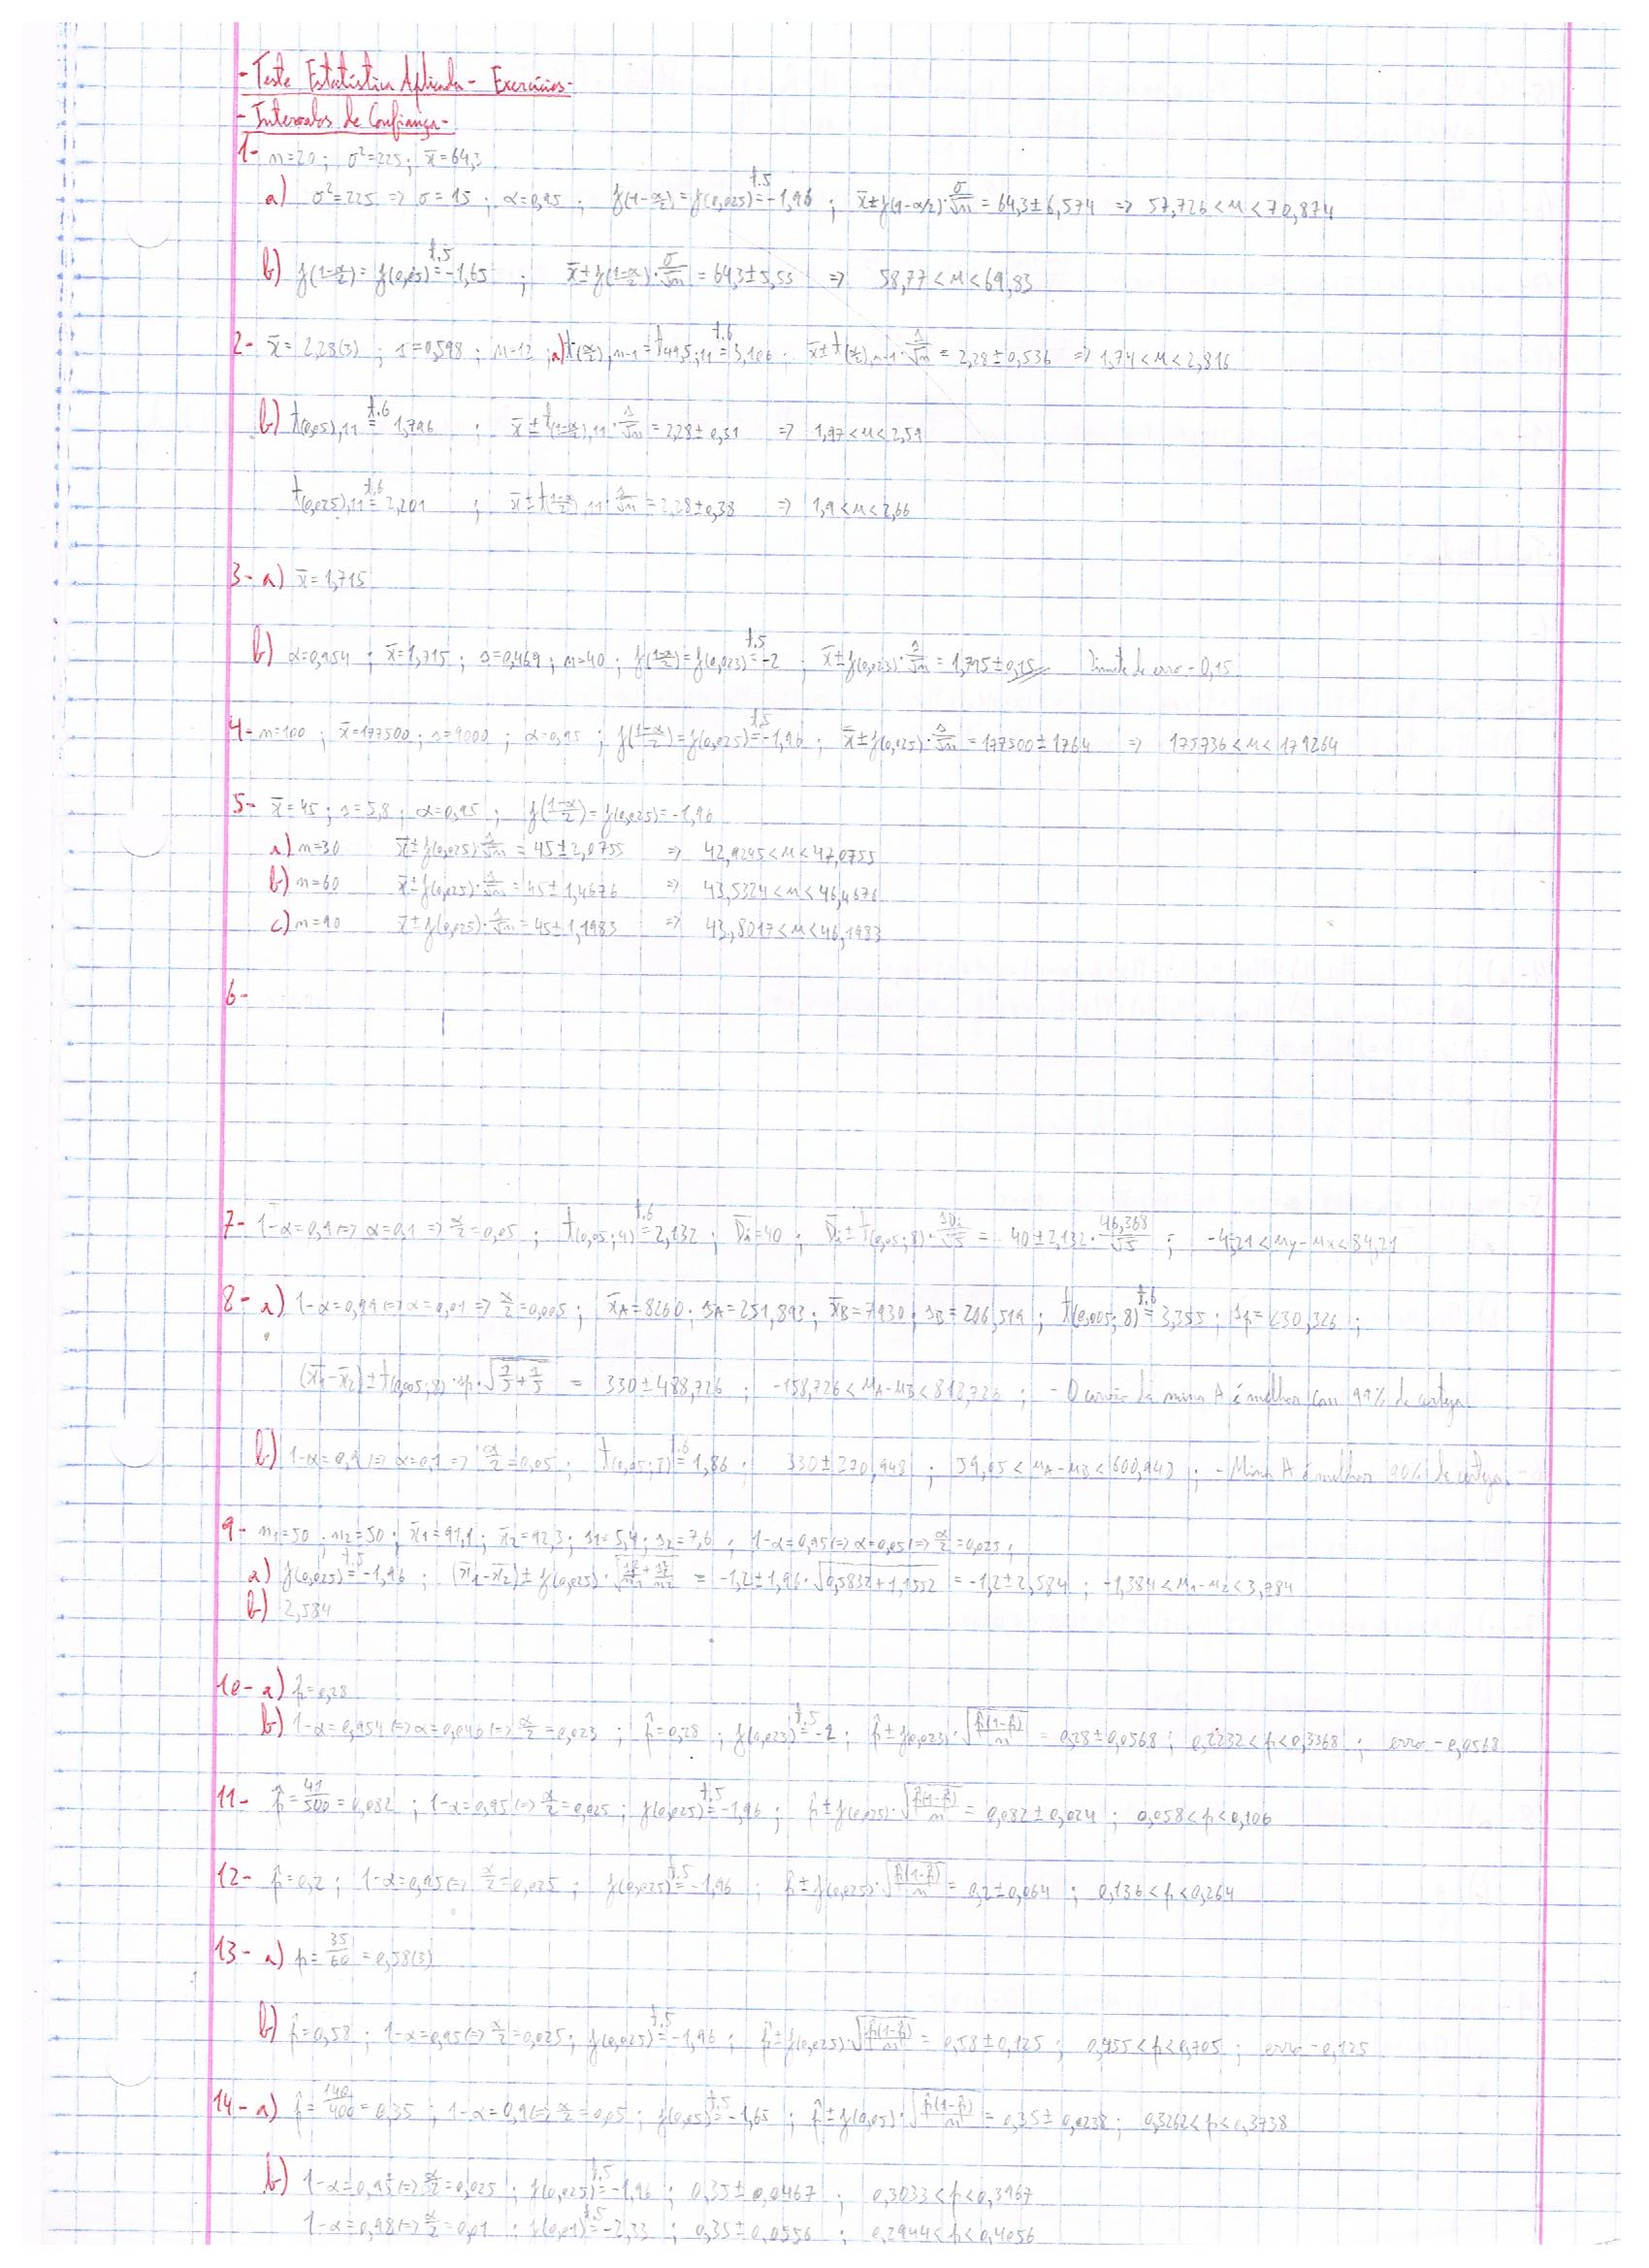 - Teste Estatística Aplicada - Exercícios -
- Intervalos de Confiança -
1- n=20 ; σ²=225 ; x̄=64,3
a) σ²=225 => σ=15 ; α=0,95 ; z(1-α/2) = z(0,025) t.5= -1,96 ; x̄ ± z(1-α/2)·σ/√n = 64,3 ± 6,574 => 57,726 < μ < 70,874
b) z(1-α/2) = z(0,05) t.5= -1,65 ; x̄ ± z(1-α/2)·σ/√n = 64,3 ± 5,53 => 58,77 < μ < 69,83
2- x̄ = 2,28(3) ; s=0,598 ; n=12 ; a) t(α/2), n-1 = 3,106 ; x̄ ± t(α/2), n-1 · s/√n = 2,28 ± 0,536 => 1,74 < μ < 2,816
b) t(0,05),11 t.6= 1,796 ; x̄ ± t(1-α/2),11 · s/√n = 2,28 ± 0,31 => 1,97 < μ < 2,59
t(0,025),11 t.6= 2,201 ; x̄ ± t(1-α/2),11 · s/√n = 2,28 ± 0,38 => 1,9 < μ < 2,66
3- a) x̄ = 1,715
b) α=0,954 ; x̄=1,715 ; s=0,469 ; n=40 ; z(1-α/2) = z(0,023) t.5= -2 ; x̄ ± z(0,023)·s/√n = 1,715 ± 0,15 Limite de erro - 0,15
4- n=100 ; x̄=177500 ; s=9000 ; α=0,95 ; z(1-α/2) = z(0,025) t.5= -1,96 ; x̄ ± z(0,025)·s/√n = 177500 ± 1764 => 175736 < μ < 179264
5- x̄=45 ; s=5,8 ; α=0,95 ; z(1-α/2) = z(0,025) = -1,96
a) n=30 x̄ ± z(0,025)·s/√n = 45 ± 2,0755 => 42,9245 < μ < 47,0755
b) n=60 x̄ ± z(0,025)·s/√n = 45 ± 1,4676 => 43,5324 < μ < 46,4676
c) n=90 x̄ ± z(0,025)·s/√n = 45 ± 1,1983 => 43,8017 < μ < 46,1983
6-
7- 1-α=0,9 (=> α=0,1 => α/2=0,05 ; t(0,05;4) t.6= 2,132 ; D̄i=40 ; D̄i ± t(0,05;8)·sDi/√5 = 40 ± 2,132·46,368/√5 ; -4,21 < μy-μx < 84,21
8- a) 1-α=0,99 (=> α=0,01 => α/2=0,005 ; x̄A=8260 ; sA=251,893 ; x̄B=7930 ; sB=206,519 ; t(0,005;8) t.6= 3,355 ; sp=230,326 ;
(x̄1-x̄2) ± t(0,005;8)·sp·√1/5+1/5 = 330 ± 488,726 ; -158,726 < μA-μB < 818,726 ; - O carvão da mina A é melhor com 99% de certeza.
b) 1-α=0,9 (=> α=0,1 => α/2=0,05 ; t(0,05;8) t.6= 1,86 ; 330 ± 270,948 ; 59,05 < μA-μB < 600,943 ; - Mina A é melhor 90% de certeza
9- n1=50 ; n2=50 ; x̄1=91,1 ; x̄2=92,3 ; s1=5,4 ; s2=7,6 ; 1-α=0,95 (=> α=0,05 (=> α/2=0,025 ;
a) z(0,025) t.5= -1,96 ; (x̄1-x̄2) ± z(0,025)·√s1²/n1+s2²/n2 = -1,2 ± 1,96·√0,5832+1,1552 = -1,2 ± 2,584 ; -1,384 < μ1-μ2 < 3,784
b) 2,584
10- a) p̂=0,28
b) 1-α=0,954 (=> α=0,046 (=> α/2=0,023 ; p̂=0,28 ; z(0,023) t.5= -2 ; p̂ ± z(0,023)·√p̂(1-p̂)/n = 0,28 ± 0,0568 ; 0,2232 < p < 0,3368 ; erro - 0,0568
11- p̂=41/500=0,082 ; 1-α=0,95 (=> α/2=0,025 ; z(0,025) t.5= -1,96 ; p̂ ± z(0,025)·√p̂(1-p̂)/n = 0,082 ± 0,024 ; 0,058 < p < 0,106
12- p̂=0,2 ; 1-α=0,95 (=> α/2=0,025 ; z(0,025) t.5= -1,96 ; p̂ ± z(0,025)·√p̂(1-p̂)/n = 0,2 ± 0,064 ; 0,136 < p < 0,264
13- a) p=35/60=0,58(3)
b) p̂=0,58 ; 1-α=0,95 (=> α/2=0,025 ; z(0,025) t.5= -1,96 ; p̂ ± z(0,025)·√p̂(1-p̂)/n = 0,58 ± 0,125 ; 0,455 < p < 0,705 ; erro - 0,125
14- a) p̂=140/400=0,35 ; 1-α=0,9 (=> α/2=0,05 ; z(0,05) t.5= -1,65 ; p̂ ± z(0,05)·√p̂(1-p̂)/n = 0,35 ± 0,0238 ; 0,3262 < p < 0,3738
b) 1-α=0,95 (=> α/2=0,025 ; z(0,025) t.5= -1,96 ; 0,35 ± 0,0467 ; 0,3033 < p < 0,3967
1-α=0,98 (=> α/2=0,01 ; z(0,01) t.5= -2,33 ; 0,35 ± 0,0556 ; 0,2944 < p < 0,4056